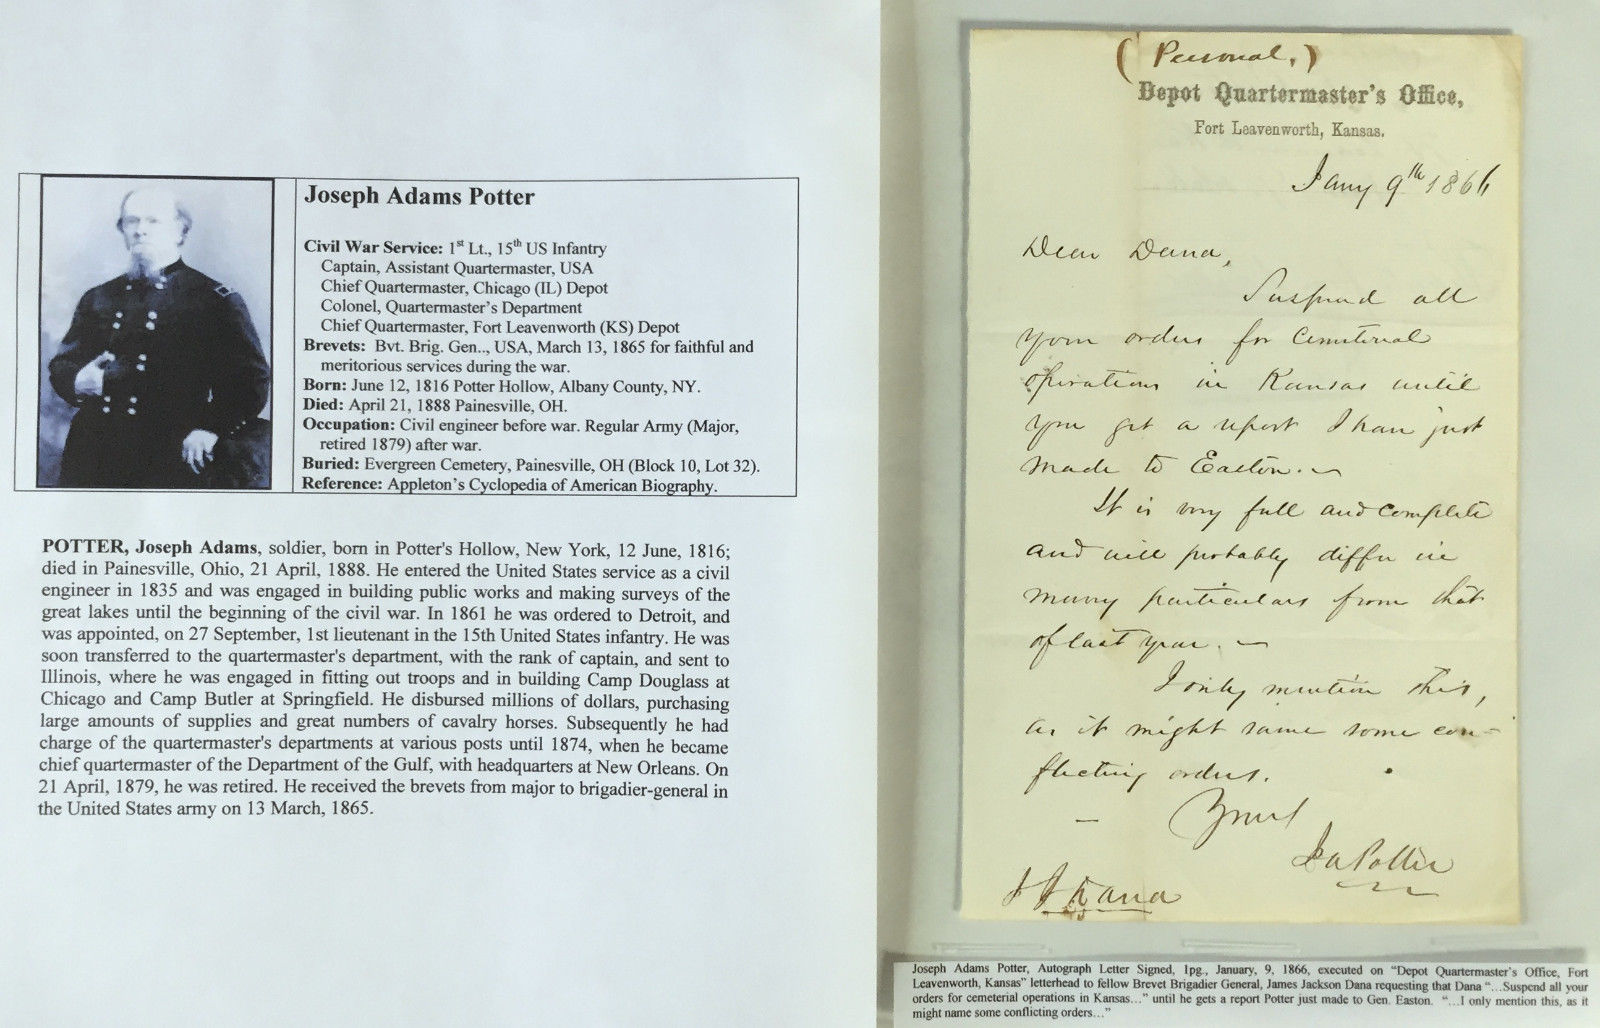 Joseph Adams Potter
Civil War Service: 1st Lt., 15th US Infantry
Captain, Assistant Quartermaster, USA
Chief Quartermaster, Chicago (IL) Depot
Colonel, Quartermaster's Department
Chief Quartermaster, Fort Leavenworth (KS) Depot
Brevets: Bvt. Brig. Gen.., USA, March 13, 1865 for faithful and
meritorious services during the war.
Born: June 12, 1816 Potter Hollow, Albany County, NY.
Died: April 21, 1888 Painesville, OH.
Occupation: Civil engineer before war. Regular Army (Major,
retired 1879) after war.
Buried: Evergreen Cemetery, Painesville, OH (Block 10, Lot 32).
Reference: Appleton's Cyclopedia of American Biography.
POTTER, Joseph Adams, soldier, born in Potter's Hollow, New York, 12 June, 1816;
died in Painesville, Ohio, 21 April, 1888. He entered the United States service as a civil
engineer in 1835 and was engaged in building public works and making surveys of the
great lakes until the beginning of the civil war. In 1861 he was ordered to Detroit, and
was appointed, on 27 September, 1st lieutenant in the 15th United States infantry. He was
soon transferred to the quartermaster's department, with the rank of captain, and sent to
Illinois, where he was engaged in fitting out troops and in building Camp Douglass at
Chicago and Camp Butler at Springfield. He disbursed millions of dollars, purchasing
large amounts of supplies and great numbers of cavalry horses. Subsequently he had
charge of the quartermaster's departments at various posts until 1874, when he became
chief quartermaster of the Department of the Gulf, with headquarters at New Orleans. On
21 April, 1879, he was retired. He received the brevets from major to brigadier-general in
the United States army on 13 March, 1865.
(Personal.)
Depot Quartermaster's Office,
Fort Leavenworth, Kansas.
Jany 9th 1866
Dear Dana,
Suspend all
your orders for Cemeterial
operations in Kansas until
you get a report I have just
made to Easton.
It is very full and complete
and will probably differ in
many particulars from that
of last year.
I only mention this,
as it might same some con-
flicting orders.
Yours
J A Potter
J J Dana
Joseph Adams Potter, Autograph Letter Signed, 1pg., January, 9, 1866, executed on "Depot Quartermaster's Office, Fort
Leavenworth, Kansas" letterhead to fellow Brevet Brigadier General, James Jackson Dana requesting that Dana "...Suspend all your
orders for cemeterial operations in Kansas..." until he gets a report Potter just made to Gen. Easton. "...I only mention this, as it
might name some conflicting orders..."